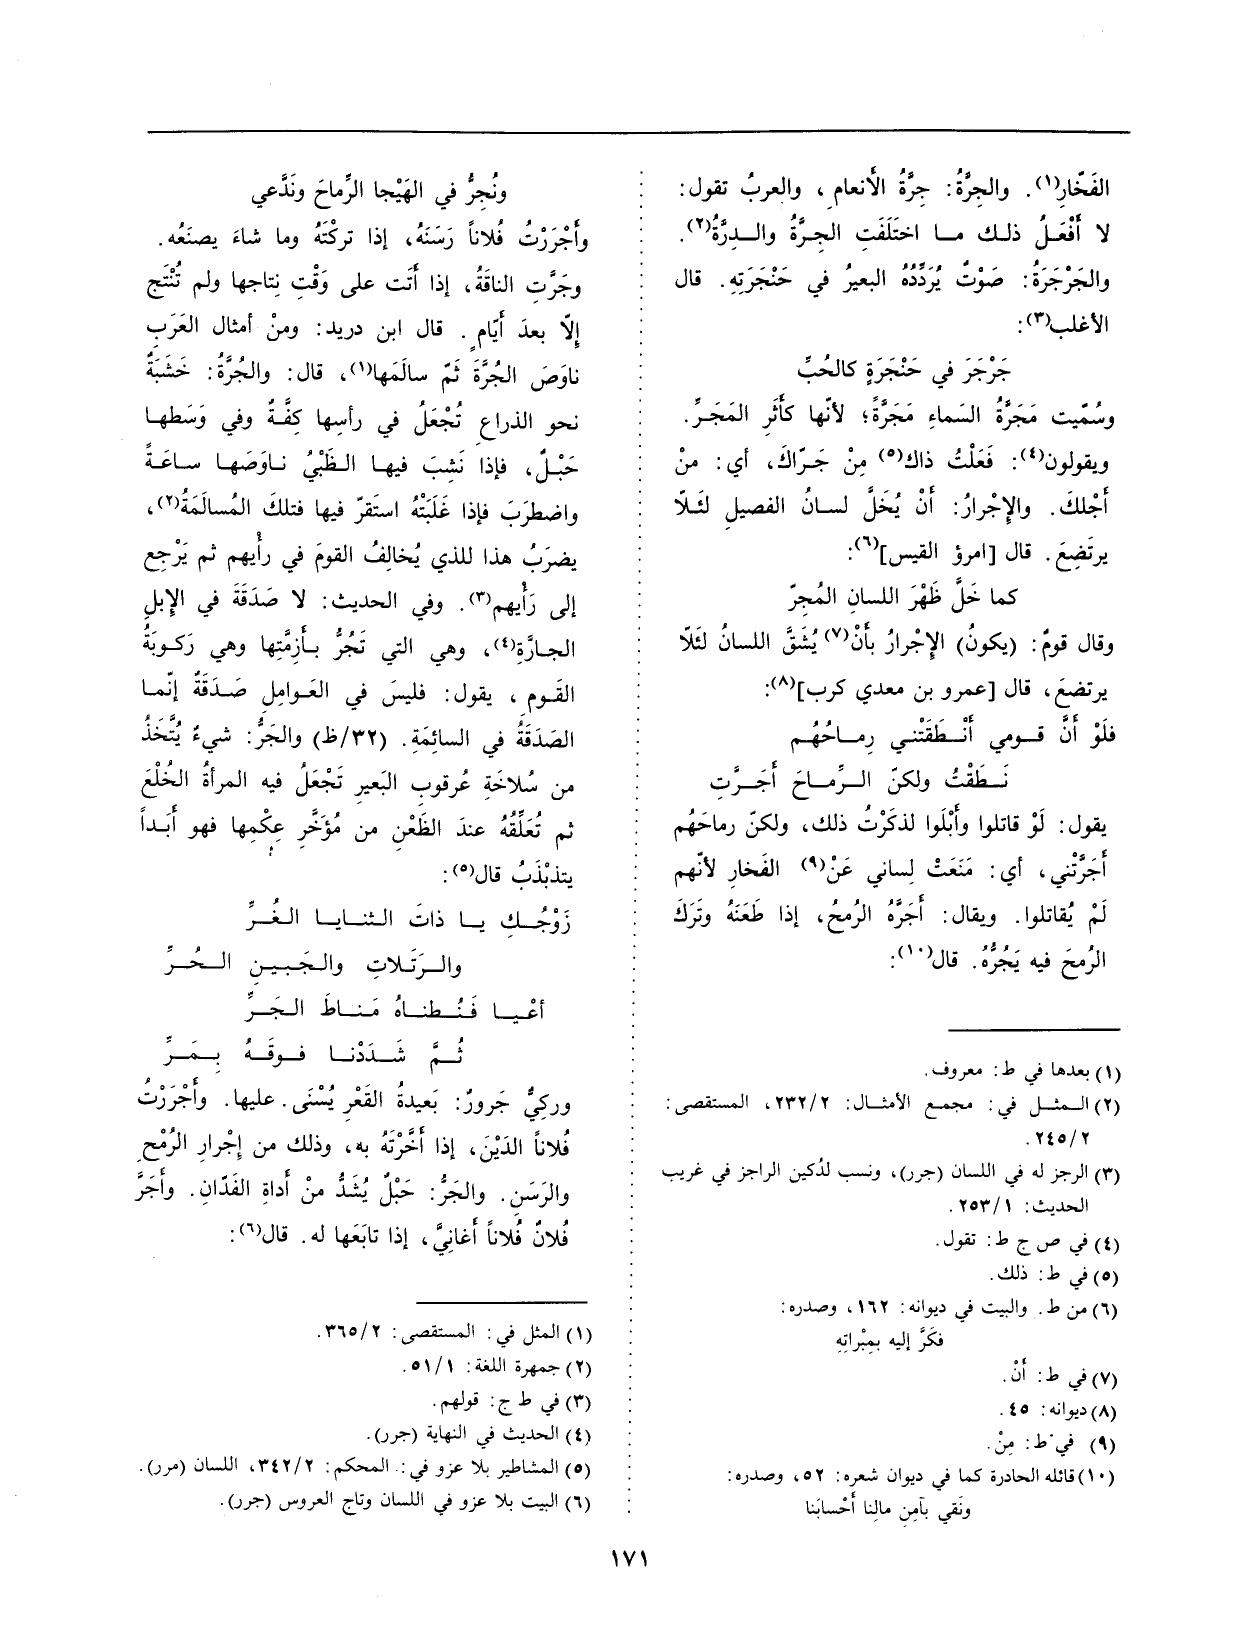 الفَخّارِ(١). والجِرَّةُ: جِرَّةُ الأَنعامِ، والعربُ تقول:
لا أَفْعَلُ ذلك ما اختَلَفَتِ الجِرَّةُ والدِرَّةُ(٢).
والجَرْجَرَةُ: صَوْتٌ يُرَدِّدُهُ البعيرُ في حَنْجَرَتِهِ. قال
الأغلب(٣):
جَرْجَرَ في حَنْجَرَةٍ كالحُبِّ
وسُمّيت مَجَرَّةُ السَماءِ مَجَرَّةً؛ لأنّها كأَثَرِ المَجَرِّ.
ويقولون(٤): فَعَلْتُ ذاك(٥) مِنْ جَرّاكَ، أي: منْ
أَجْلكَ. والإِجْرارُ: أَنْ يُخَلَّ لسانُ الفصيلِ لئلاّ
يرتَضِعَ. قال [امرؤ القيس](٦):
كما خَلَّ ظَهْرَ اللسانِ المُجِرّ
وقال قومٌ: (يكونُ) الإِجْرارُ بأَنْ(٧) يُشَقَّ اللسانُ لئَلاّ
يرتضعَ، قال [عمرو بن معدي كرب](٨):
فلَوْ أَنَّ قومي أَنْطَقَتْني رِماحُهُم
نَطَقْتُ ولكنّ الرِّماحَ أَجَرَّتِ
يقول: لَوْ قاتلوا وأَبْلَوا لذكَرْتُ ذلك، ولكنّ رماحَهُم
أَجَرَّتْني، أي: مَنَعَتْ لِساني عَنْ(٩) الفَخارِ لأنّهم
لَمْ يُقاتلوا. ويقال: أَجَرَّهُ الرُمحَ، إذا طَعَنَهُ وتَرَكَ
الرُمحَ فيه يَجُرُّه. قال(١٠):
(١) بعدها في ط: معروف.
(٢) المثل في: مجمع الأمثال: ٢٣٢/٢، المستقصى:
٢٤٥/٢.
(٣) الرجز له في اللسان (جرر)، ونسب لدُكين الراجز في غريب
الحديث: ٢٥٣/١.
(٤) في ص ج ط: تقول.
(٥) في ط: ذلك.
(٦) من ط. والبيت في ديوانه: ١٦٢، وصدره:
فكَرَّ إليه بمِبْراتِهِ
(٧) في ط: أَنْ.
(٨) ديوانه: ٤٥.
(٩) في ط: مِنْ.
(١٠) قائله الحادرة كما في ديوان شعره: ٥٢، وصدره:
ونَقي بآمِنِ مالِنا أَحْسابَنا
ونُجِرُّ في الهَيْجا الرِّماحَ ونَدَّعي
وأَجْرَرْتُ فُلاناً رَسَنَهُ، إذا تركْتَهُ وما شاءَ يصنَعُه.
وجَرَّتِ الناقَةُ، إذا أَتَت على وَقْتِ نِتاجها ولم تُنْتَج
إلاّ بعدَ أَيّامٍ. قال ابن دريد: ومنْ أمثال العَرَبِ
ناوَصَ الجُرَّةَ ثمّ سالَمَها(١)، قال: والجُرَّةُ: خَشَبَةٌ
نحو الذراعِ تُجْعَلُ في رأسِها كِفَّةٌ وفي وَسَطها
حَبْلٌ، فإذا نَشِبَ فيها الظَبْيُ ناوَصَها ساعَةً
واضطرَبَ فإذا غَلَبَتْهُ استَقرّ فيها فتلكَ المُسالَمَةُ(٢)،
يضرَبُ هذا للذي يُخالِفُ القومَ في رأْيهم ثم يَرْجع
إلى رَأْيهم(٣). وفي الحديث: لا صَدَقَةَ في الإبلِ
الجارَّةِ(٤)، وهي التي تَجُرُّ بأَزِمَّتِها وهي رَكوبَةُ
القومِ، يقول: فليسَ في العَواملِ صَدَقَةٌ إنّما
الصَدَقَةُ في السائِمَةِ. (٣٢/ظ) والجَرُّ: شيءٌ يُتَّخَذُ
من سُلاخَةِ عُرقوبِ البَعير تَجْعَلُ فيه المرأةُ الخُلْعَ
ثم تُعَلِّقُهُ عندَ الظَعْنِ من مُؤَخَّرِ عِكْمِها فهو أَبَداً
يتذَبْذَبُ قال(٥):
زَوْجُكِ يا ذاتَ الثنايا الغُرِّ
والرَتَلاتِ والجَبينِ الحُرِّ
أعْيا فَنُطناهُ مَناطَ الجَرِّ
ثُمَّ شَدَدْنا فوقَهُ بِمَرِّ
وركِيٌّ جَرورٌ: بَعيدةُ القَعْرِ يُسْنَى. عليها. وأَجْرَرْتُ
فُلاناً الدَيْنَ، إذا أَخَّرْتَهُ به، وذلك من إجْرارِ الرُمْحِ
والرَسَن. والجَرُّ: حَبْلٌ يُشَدُّ منْ أداةِ الفَدّانِ. وأَجَرَّ
فُلانٌ فُلاناً أَغانِيَّ، إذا تابَعَها له. قال(٦):
(١) المثل في: المستقصى: ٣٦٥/٢.
(٢) جمهرة اللغة: ٥١/١.
(٣) في ط ج: قولهم.
(٤) الحديث في النهاية (جرر).
(٥) المشاطير بلا عزو في: المحكم: ٣٤٢/٢، اللسان (مرر).
(٦) البيت بلا عزو في اللسان وتاج العروس (جرر).
١٧١